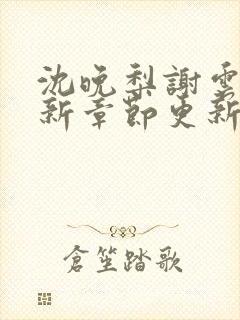 沈晚梨謝雲
新章節更新
倉笙踏歌